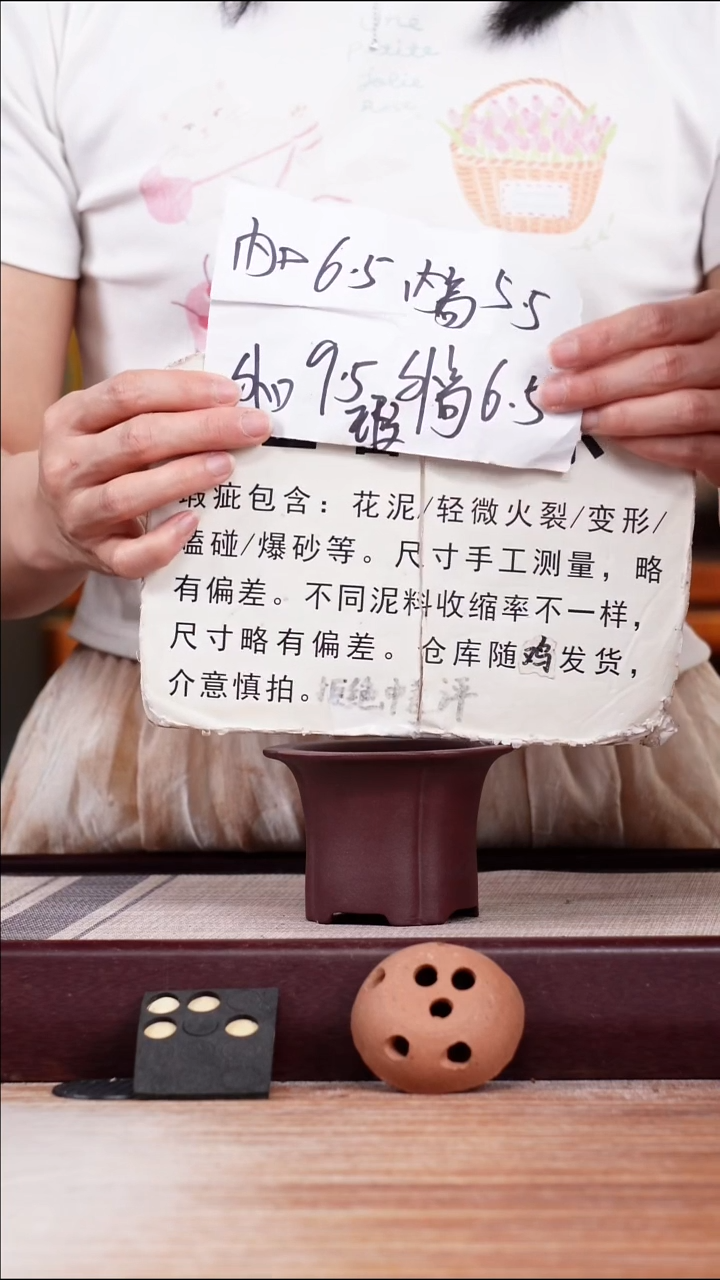 une
petite
jolie
内口6.5 内高5.5
外口9.5 外高6.5
瑕
瑕疵包含：花泥/轻微火裂/变形/
磕碰/爆砂等。尺寸手工测量，略
有偏差。不同泥料收缩率不一样，
尺寸略有偏差。仓库随鸡发货，
介意慎拍。拒绝中差评